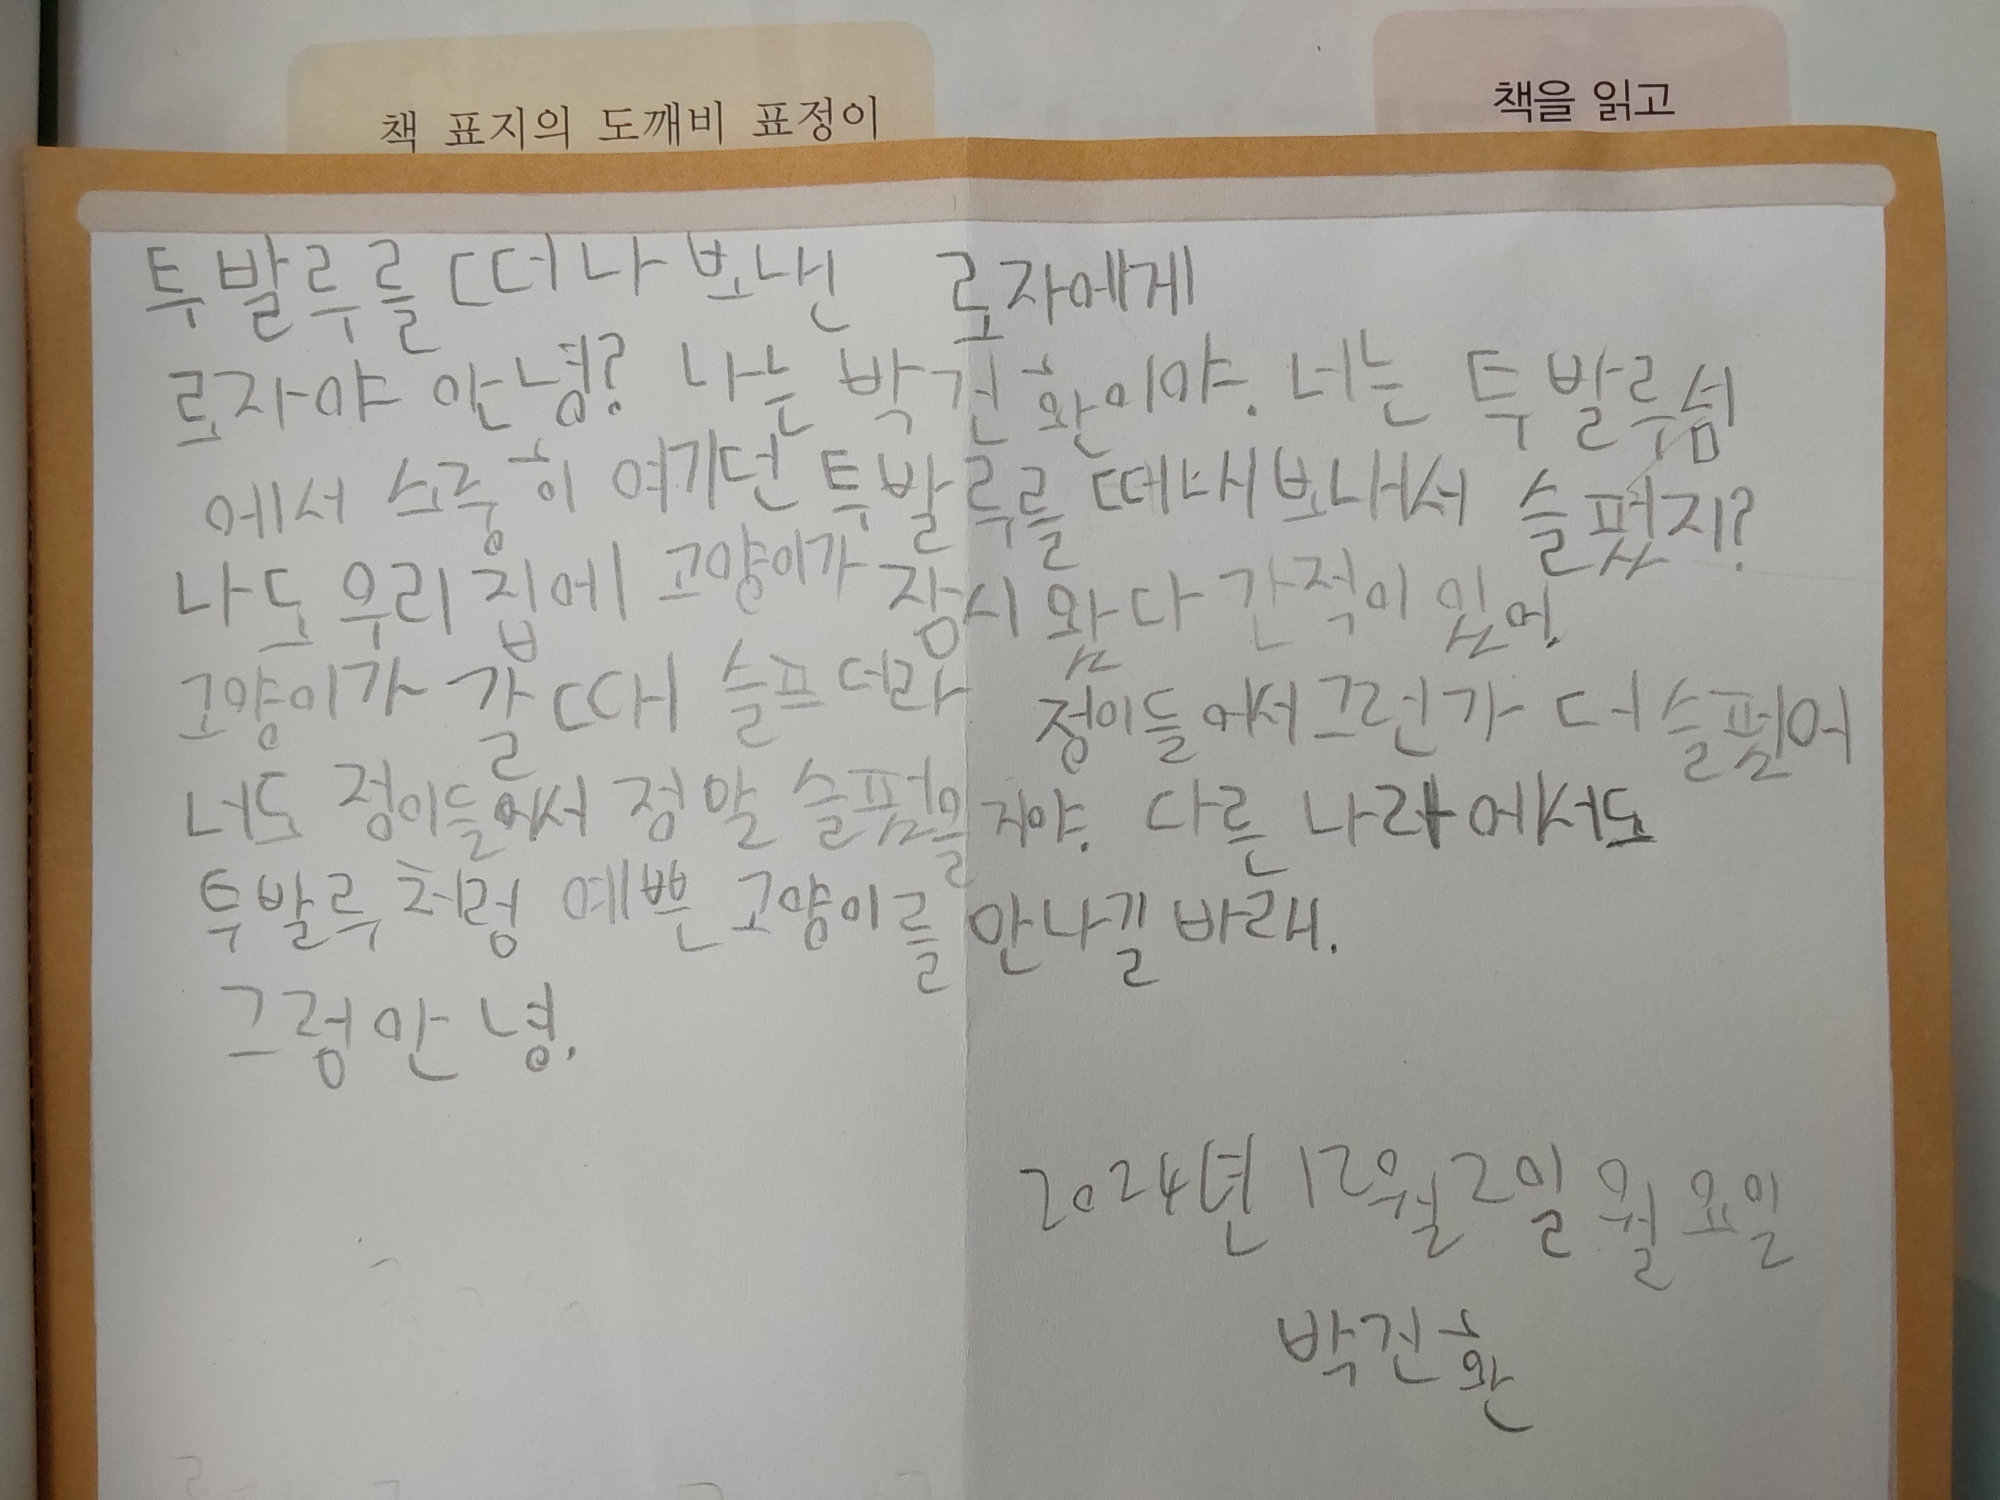 책 표지의 도깨비 표정이
책을 읽고
투발루를 떠나 보낸 로자에게
로자야 안녕? 나는 박건환이야. 너는 투발루섬
에서 소중히 여기던 투발루를 떠내보내서 슬펐지?
나도 우리 집에 고양이가 잠시 왔다 간적이 있어.
고양이가 갈 때 슬프더라 정이들어서그런가 더 슬펐어
너도 정이들어서 정말 슬펐을지야. 다른 나라에서도
투발루처럼 예쁜 고양이를 만나길 바래.
그럼안녕.
2024년 12월2일 월요일
박건환